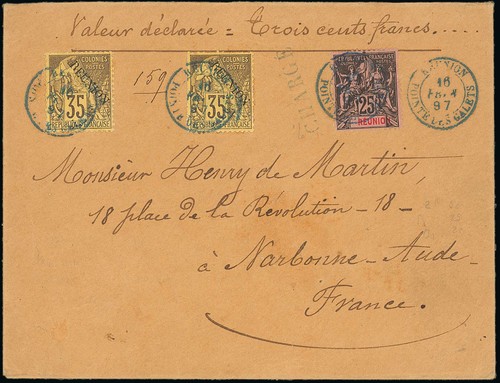 Valeur déclarée = Trois cents francs....
COLONIES POSTES 35 RÉUNION
159
COLONIES POSTES 35 RÉUNION
COLONIES POSTES 35 RÉUNION
CHARGÉ
25 RÉUNION
RÉUNION 16 97 POINTE DES GALETS
Monsieur Henry de Martin,
18 place de la Révolution - 18 -
à Narbonne - Aude -
France.